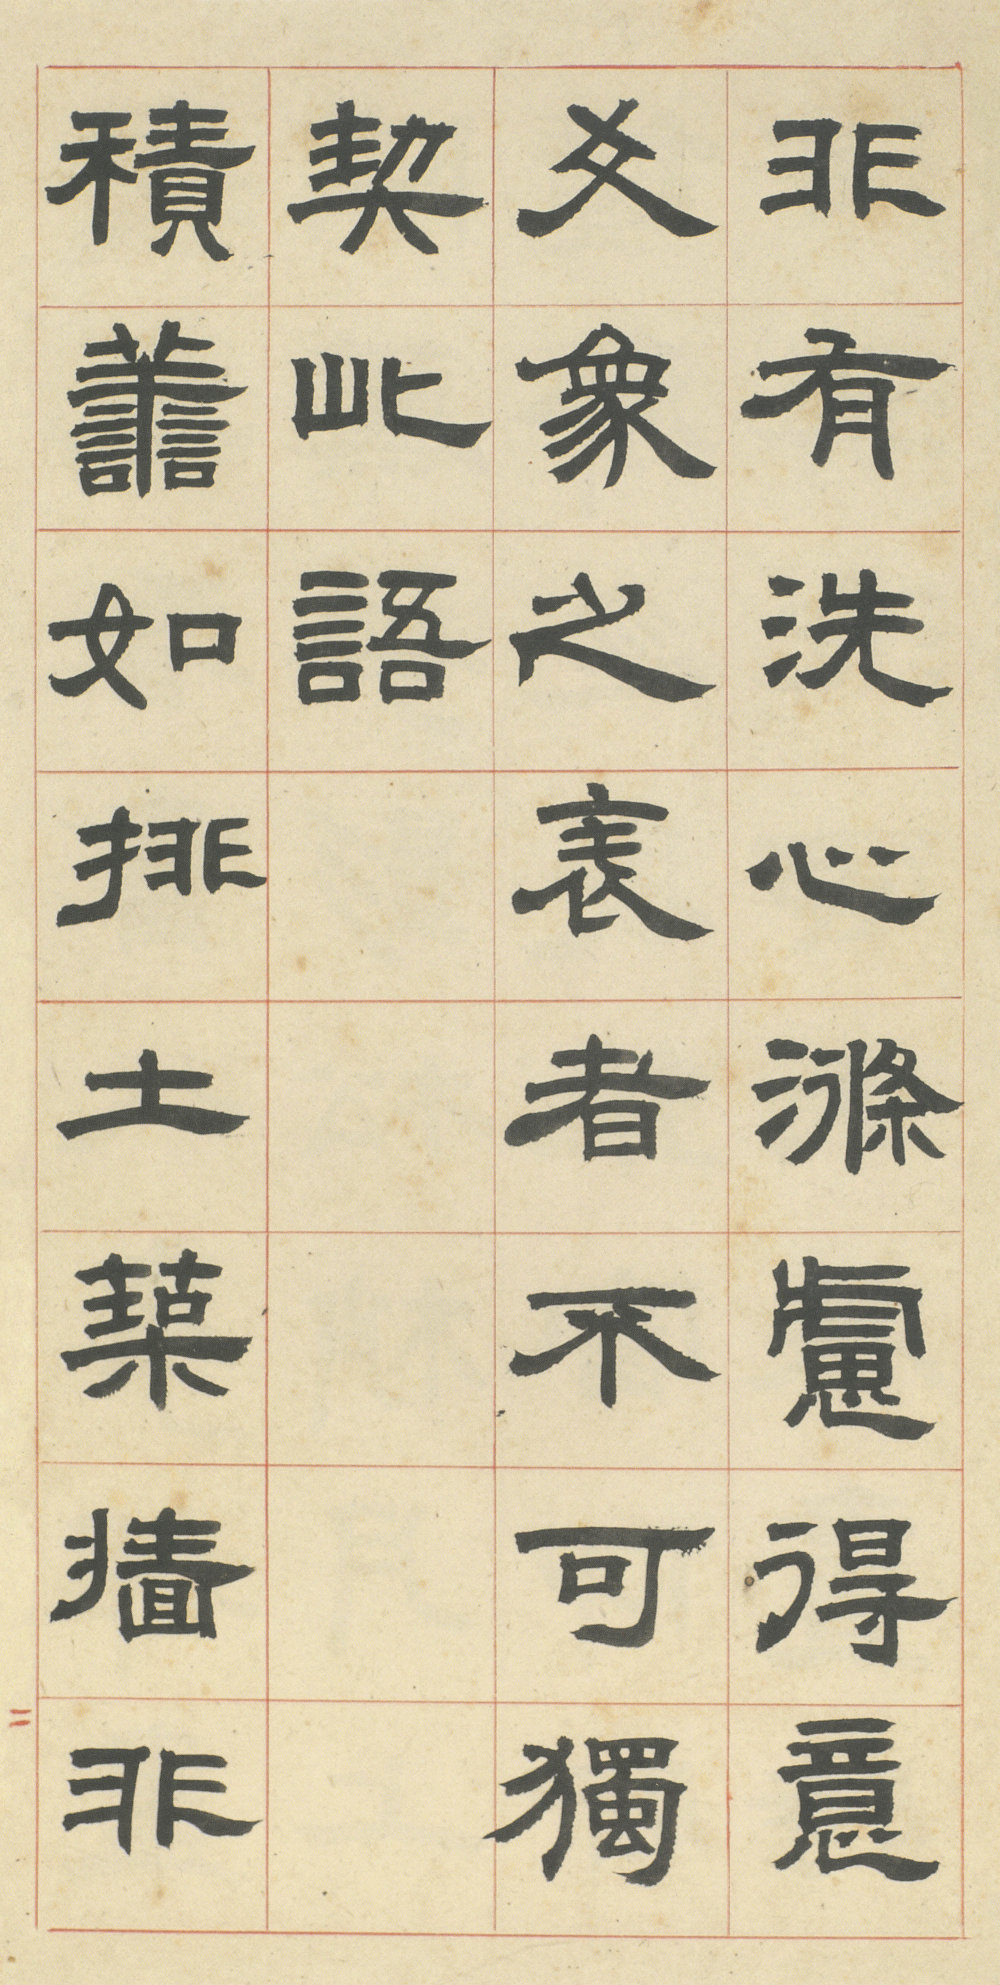 非有洗心滌慮得意
爻象之表者不可獨
契此語
積善如排土築牆非